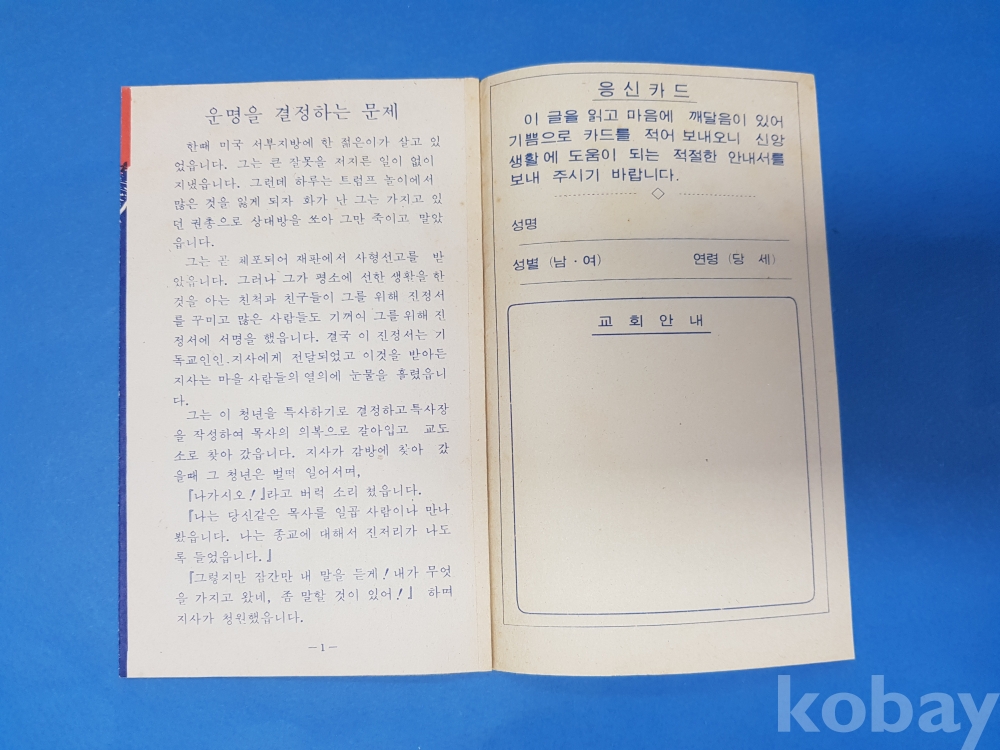 운명을 결정하는 문제
한때 미국 서부지방에 한 젊은이가 살고 있
었읍니다. 그는 큰 잘못을 저지른 일이 없이
지냈읍니다. 그런데 하루는 트럼프 놀이에서
많은 것을 잃게 되자 화가 난 그는 가지고 있
던 권총으로 상대방을 쏘아 그만 죽이고 말았
읍니다.
그는 곧 체포되어 재판에서 사형선고를 받
았읍니다. 그러나 그가 평소에 선한 생활을 한
것을 아는 친척과 친구들이 그를 위해 진정서
를 꾸미고 많은 사람들도 기꺼이 그를 위해 진
정서에 서명을 했읍니다. 결국 이 진정서는 기
독교인인 지사에게 전달되었고 이것을 받아든
지사는 마을 사람들의 열의에 눈물을 흘렸읍니
다.
그는 이 청년을 특사하기로 결정하고 특사장
을 작성하여 목사의 의복으로 갈아입고 교도
소로 찾아 갔읍니다. 지사가 감방에 찾아 갔
을때 그 청년은 벌떡 일어서며,
『나가시오!』라고 버럭 소리 쳤읍니다.
『나는 당신같은 목사를 일곱 사람이나 만나
봤읍니다. 나는 종교에 대해서 진저리가 나도
록 들었읍니다.』
『그렇지만 잠간만 내 말을 듣게! 내가 무엇
을 가지고 왔네, 좀 말할 것이 있어!』 하며
지사가 청원했읍니다.
—1—
응신카드
이 글을 읽고 마음에 깨달음이 있어
기쁨으로 카드를 적어 보내오니 신앙
생활에 도움이 되는 적절한 안내서를
보내 주시기 바랍니다.
성명
성별 (남·여) 연령 (당 세)
교회안내
kobay